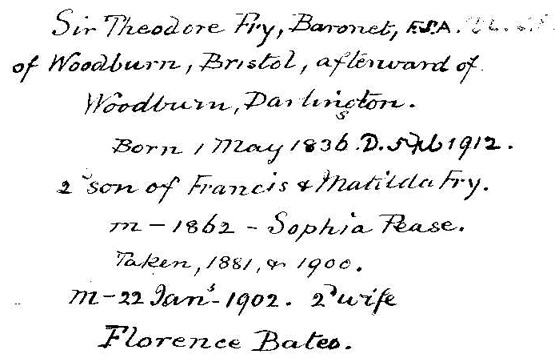 Sir Theodore Fry, Baronet, F.S.A.
of Woodburn, Bristol, afterward of
Woodburn, Darlington.
Born 1 May 1836. D. 5 Feb 1912.
2d son of Francis & Matilda Fry.
m - 1862 - Sophia Pease.
Taken, 1881, & 1900.
m - 22 Jany - 1902. 2d wife
Florence Bates.